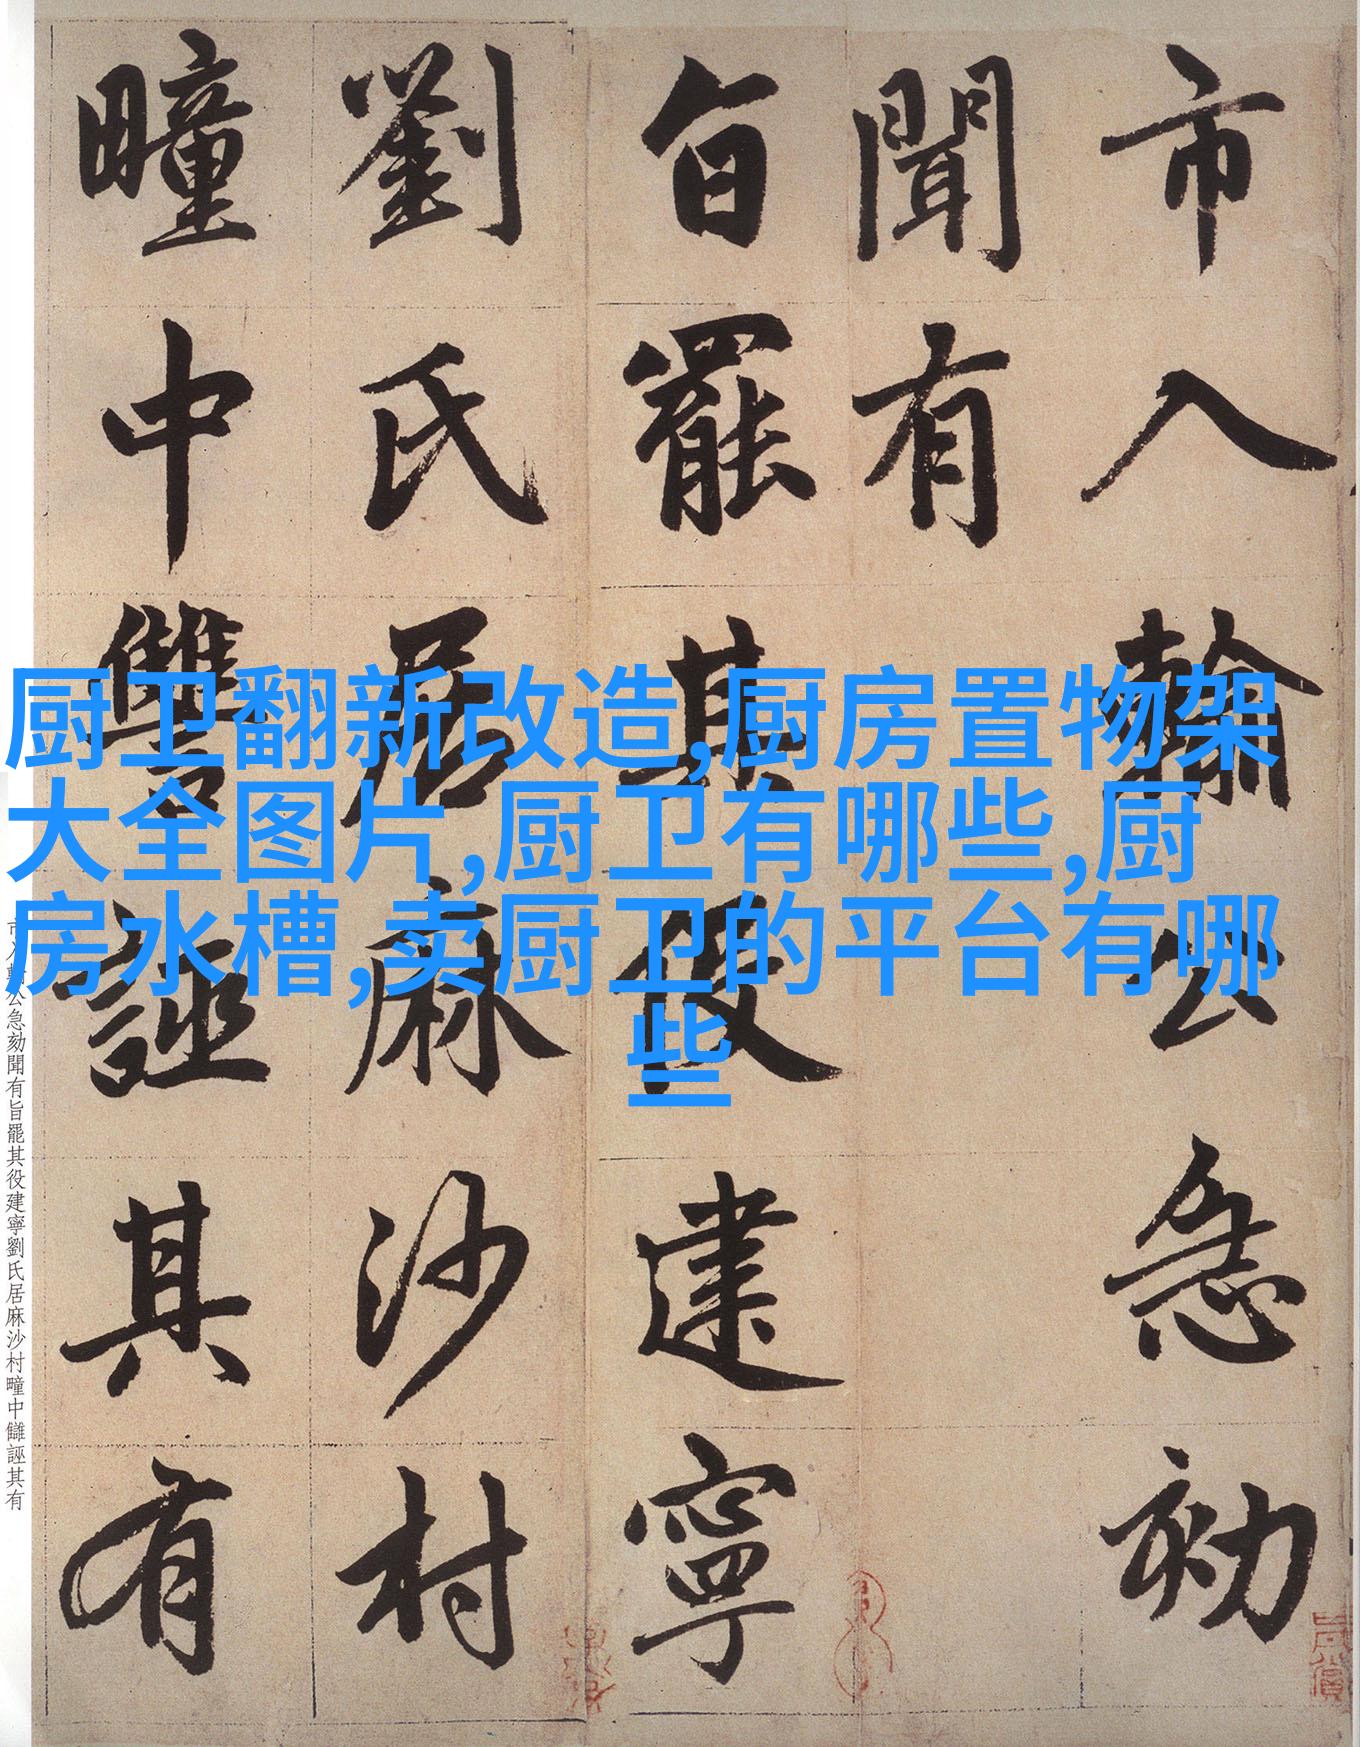 市入翰公急劾
聞有
旨罷其役建寧
劉氏居麻沙村
疃中讐誣其有
厨卫翻新改造,厨房置物架
大全图片,厨卫有哪些,厨
房水槽,卖厨卫的平台有哪
些
市入翰公急劾聞有旨罷其役建寧劉氏居麻沙村疃中讎誣其有